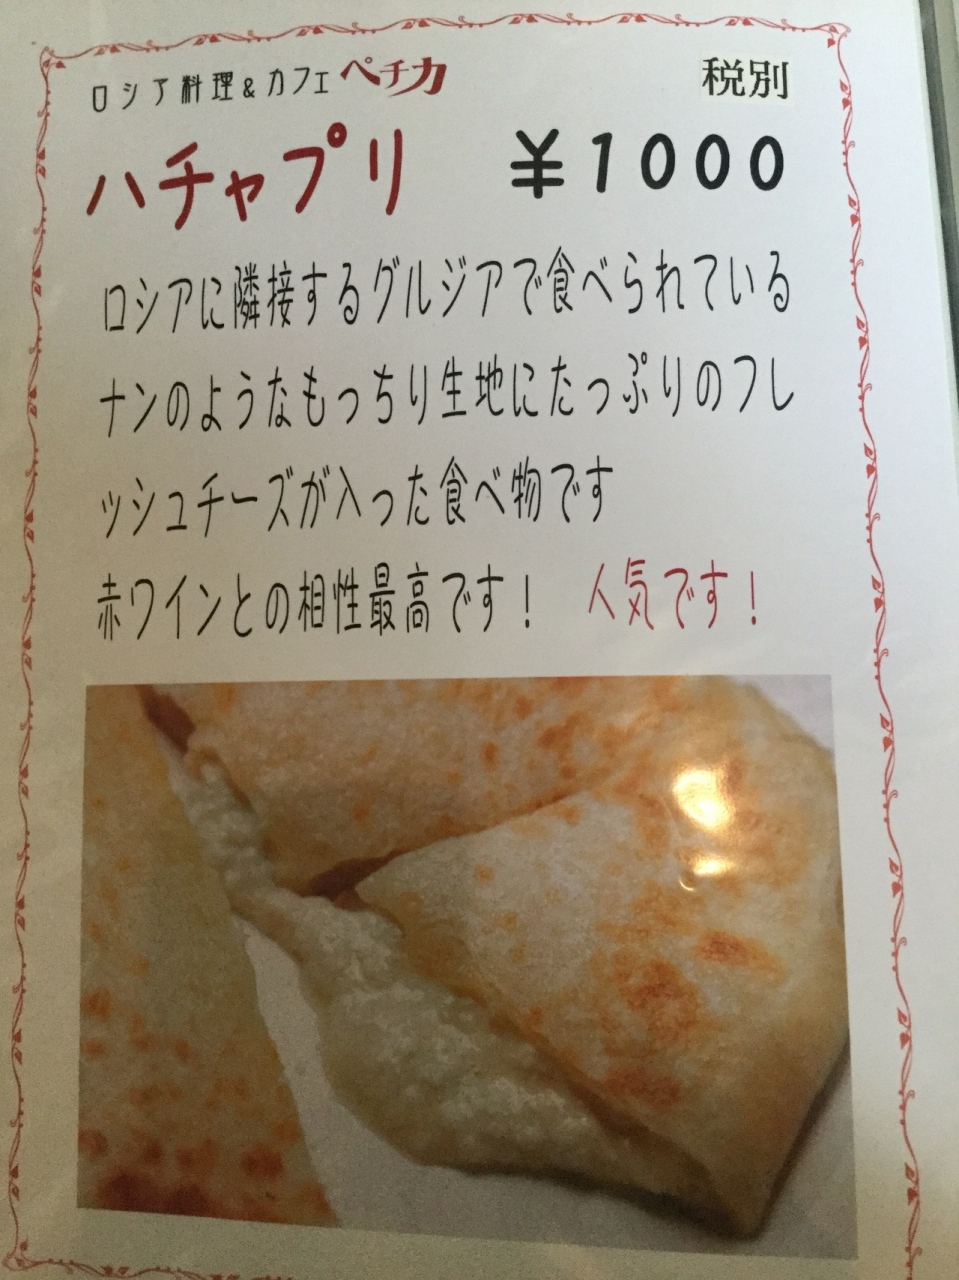 ロシア料理&カフェペチカ 税別
ハチャプリ ¥1000
ロシアに隣接するグルジアで食べられている
ナンのようなもっちり生地にたっぷりのフレ
ッシュチーズが入った食べ物です
赤ワインとの相性最高です！ 人気です！